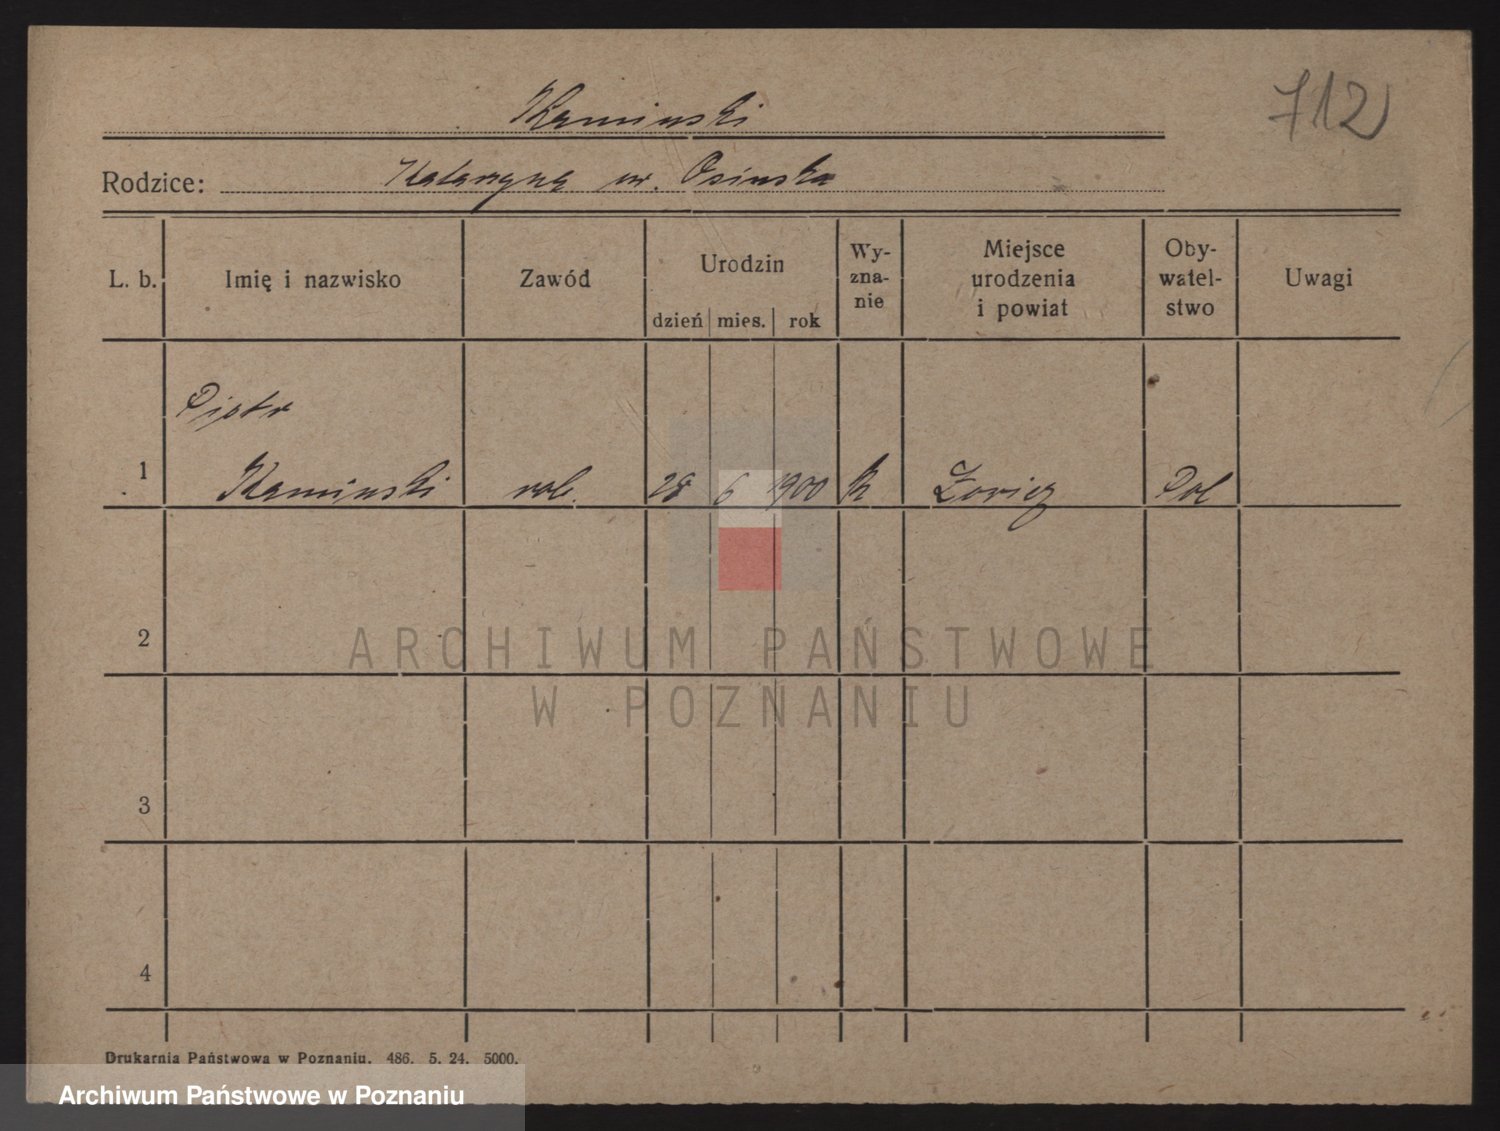 Kaminski
712
Rodzice: Katarzyna ur. Osinska
L. b.
Imię i nazwisko
Zawód
Urodzin
dzień mies. rok
Wy-
zna-
nie
Miejsce
urodzenia
i powiat
Oby-
watel-
stwo
Uwagi
Piotr
1 Kaminski rob. 28 6 1900 k Pol
2
3
4
ARCHIWUM PAŃSTWOWE
W POZNANIU
Drukarnia Państwowa w Poznaniu. 486. 5. 24. 5000.
Archiwum Państwowe w Poznaniu